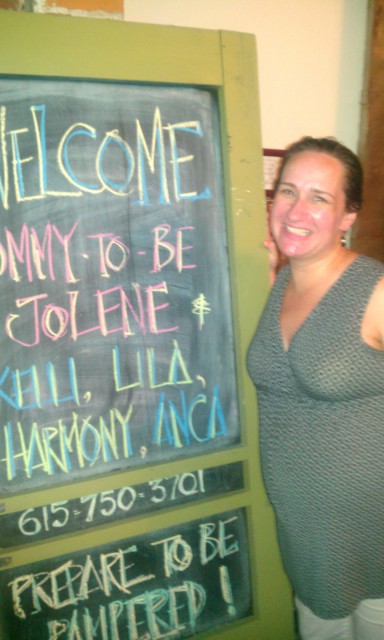 WELCOME
MOMMY-TO-BE
JOLENE &
KELLI, LILA,
HARMONY, ANCA
615-750-3701
PREPARE TO BE
PAMPERED!